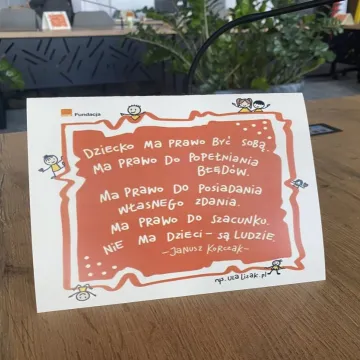 Fundacja
DZIECKO MA PRAWO BYĆ SOBĄ.
MA PRAWO DO POPEŁNIANIA
BŁĘDÓW.
MA PRAWO DO POSIADANIA
WŁASNEGO ZDANIA.
MA PRAWO DO SZACUNKU.
NIE MA DZIECI – SĄ LUDZIE.
– JANUSZ KORCZAK –